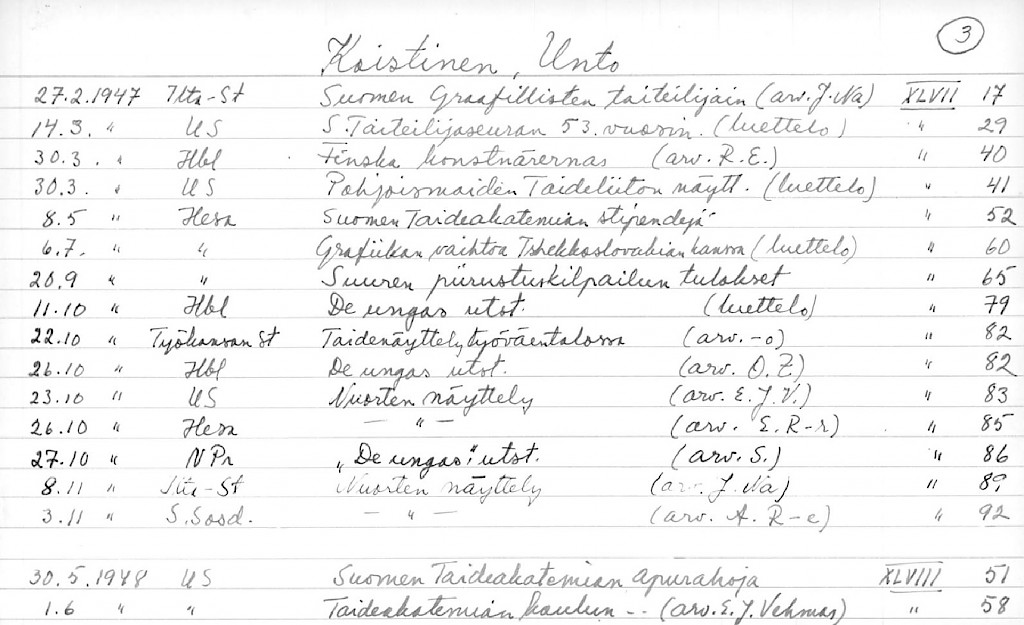 3
Koistinen, Unto
27.2.1947 Ilta-St Suomen Graafillisten taiteilijain (arv. J. Na) XLVII 17
14.3. " US S. Taiteilijaseuran 53. vuosin. (luettelo) " 29
30.3. " Hbl Finska konstnärernas (arv. R.E.) " 40
30.3. " US Pohjoismaiden Taideliiton näytt. (luettelo) " 41
8.5 " Hesa Suomen Taideakatemian stipendejä " 52
6.7. " " Grafiikan vaihtoa Tshekkoslovakian kanssa (luettelo) " 60
20.9 " " Suuren piirustuskilpailun tulokset " 65
11.10 " Hbl De ungas utst. (luettelo) " 79
22.10 " Työkansan St Taidenäyttely työväentalossa (arv. -o) " 82
26.10 " Hbl De ungas utst. (arv. O.Z) " 82
23.10 " US Nuorten näyttely (arv. E.J.V.) " 83
26.10 " Hesa — " — (arv. E.R-r) " 85
27.10 " N Pr „De ungas" utst. (arv. S.) " 86
8.11 " Ilta-St Nuorten näyttely (arv. J. Na) " 89
3.11 " S. Sosd. — " — (arv. A. R-e) " 92
30.5.1948 US Suomen Taideakatemian apurahoja XLVIII 51
1.6 " " Taideakatemian koulun -- (arv. E.J. Vehmas) " 58